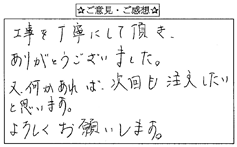 ☆ご意見・ご感想☆
工事を丁寧にして頂き、
ありがとうございました。
又、何かあれば、次回も注文したい
と思います。
よろしくお願いします。